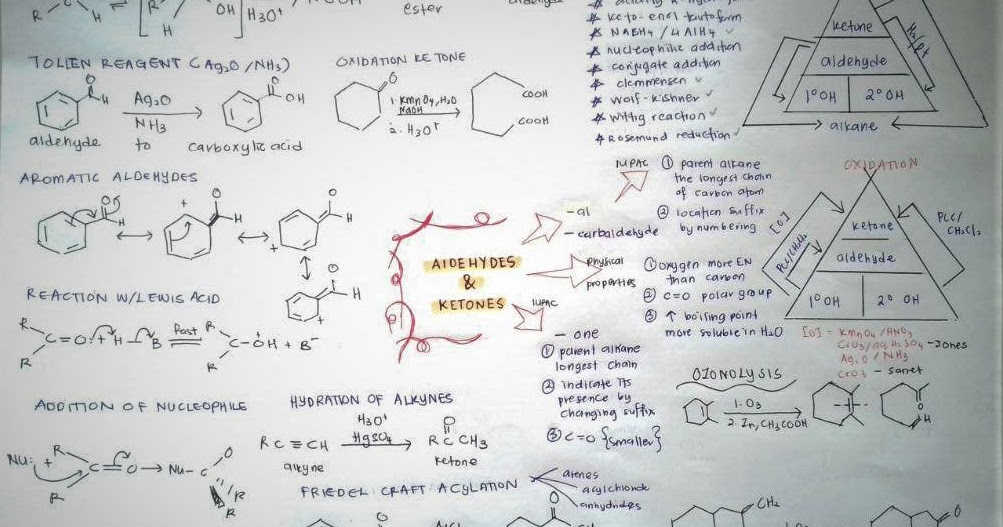 OH
H3O+
ester
* keto-enol tautoform
* NaBH4 / LiAlH4 ✓
* nucleophilic addition
* conjugate addition
* clemmensen ✓
* Wolf-kishner ✓
* Wittig reaction ✓
* Rosemund reduction ✓
ketone
H2/pt
aldehyde
1° OH
2° OH
alkane
TOLLEN REAGENT (Ag2O/NH3)
H
Ag2O
NH3
O
OH
aldehyde
to
carboxylic acid
OXIDATION KETONE
O
1. KMnO4, H2O
NaOH
2. H3O+
COOH
COOH
AROMATIC ALDEHYDES
REACTION W/LEWIS ACID
R
C=O: + H-B
Fast
R
C-OH + B-
R
R
ADDITION OF NUCLEOPHILE
Nu: +
R
C=O → Nu-C
O
R
R
R
HYDRATION OF ALKYNES
RC≡CH
H3O+
HgSO4
O
RCCH3
alkyne
ketone
FRIEDEL CRAFT ACYLATION
arenes
acylchloride
anhydrides
ALDEHYDES
&
KETONES
-al
- carbaldehyde
IUPAC
① parent alkane
the longest chain
of carbon atom
② location suffix
by numbering
physical
properties
① oxygen more EN
than carbon
② C=O polar group
③ ↑ boiling point
more soluble in H2O
IUPAC
- one
① parent alkane
longest chain
② indicate its
presence by
changing suffix
③ C=O {smaller}
OXIDATION
[O]
PCC/CH2Cl2
PCC/
CH2Cl2
ketone
aldehyde
1° OH
2° OH
[O] = KMnO4/HNO3
CrO3/aq H2SO4 - Jones
Ag2O/NH3
CrO3 - sarret
OZONOLYSIS
1. O3
2. Zn, CH3COOH
O
H
O
CH2
O